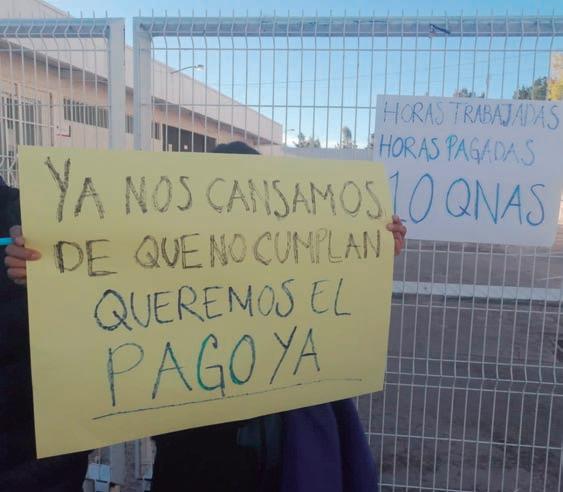 YA NOS CANSAMOS
DE QUE NO CUMPLAN
QUEREMOS EL
PAGO YA
HORAS TRABAJADAS
HORAS PAGADAS
10 QNAS